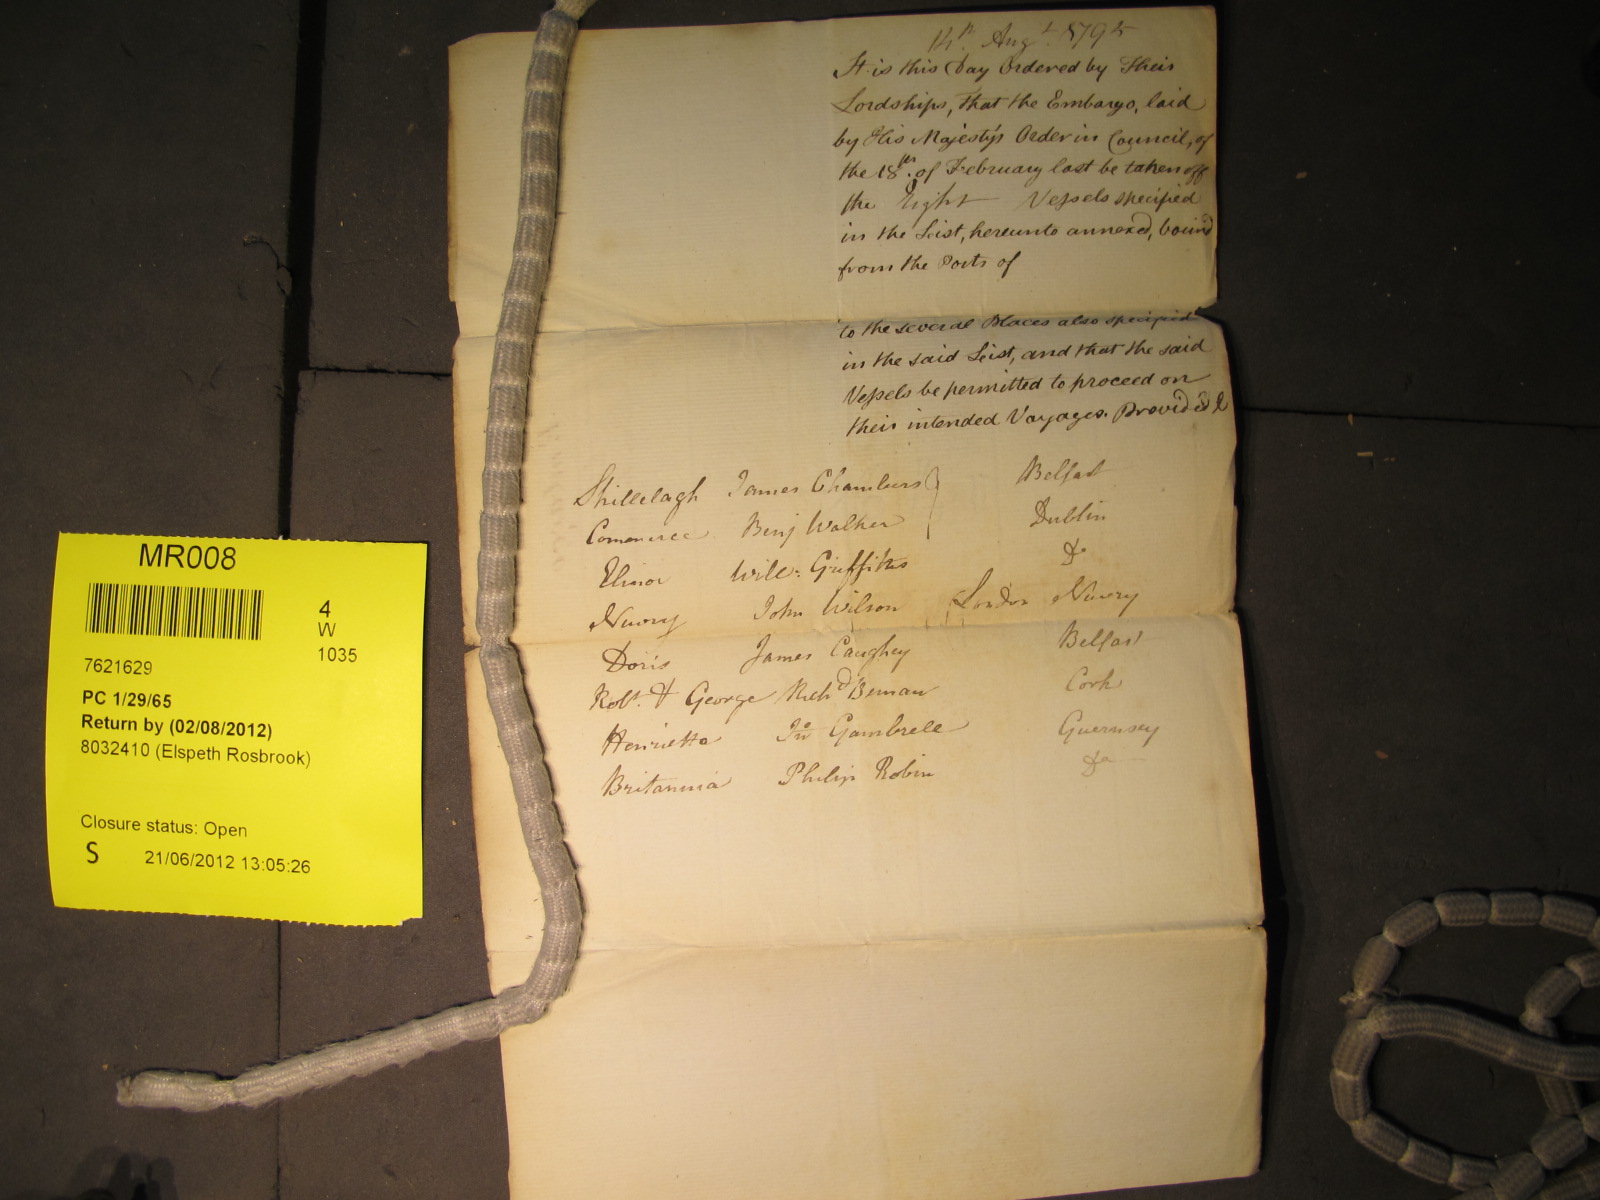 14th. Augt. 1795
It is this Day Ordered by Their
Lordships, That the Embargo, laid
by His Majesty's Order in Council, of
the 18th. of February last be taken off
the Eight Vessels specified
in the List, hereunto annexed, bound
from the Ports of
to the several Places also specified
in the said List, and that the said
Vessels be permitted to proceed on
their intended Voyages. Provided &
Shillelagh James Chambers Belfast
Commerce Benj Walker Dublin
Elinor Will: Griffiths Do
Newry John Wilson London Newry
Doris James Caughey Belfast
Robt. & George Richd Beman Cork
Henrietta Jno Gambrele Guernsey
Britannia Philip Robin Do
MR008
4
W
1035
7621629
PC 1/29/65
Return by (02/08/2012)
8032410 (Elspeth Rosbrook)
Closure status: Open
S 21/06/2012 13:05:26